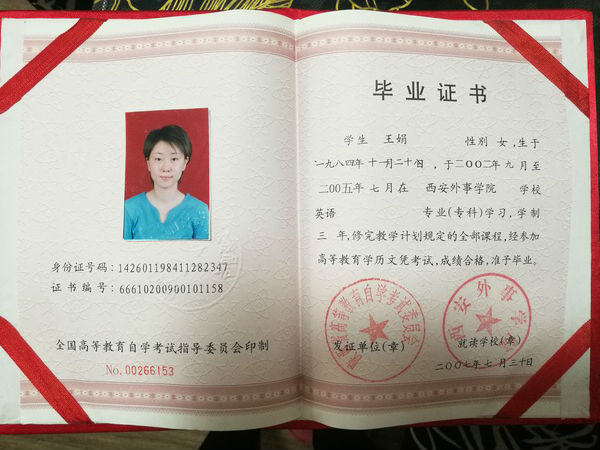 身份证号码:142601198411282347
证书编号:66610200900101158
全国高等教育自学考试指导委员会印制
No.00266153
毕业证书
学生 王娟 性别 女,生于
一九八四年十一月二十日,于二〇〇二年九月至
二〇〇五年七月在 西安外事学院 学校
英语 专业(专科)学习,学制
三年,修完教学计划规定的全部课程,经参加
高等教育学历文凭考试,成绩合格,准予毕业。
高等教育自学考试委员会
西安外事学院
发证单位(章) 就读学校(章)
二〇〇七年七月三十日